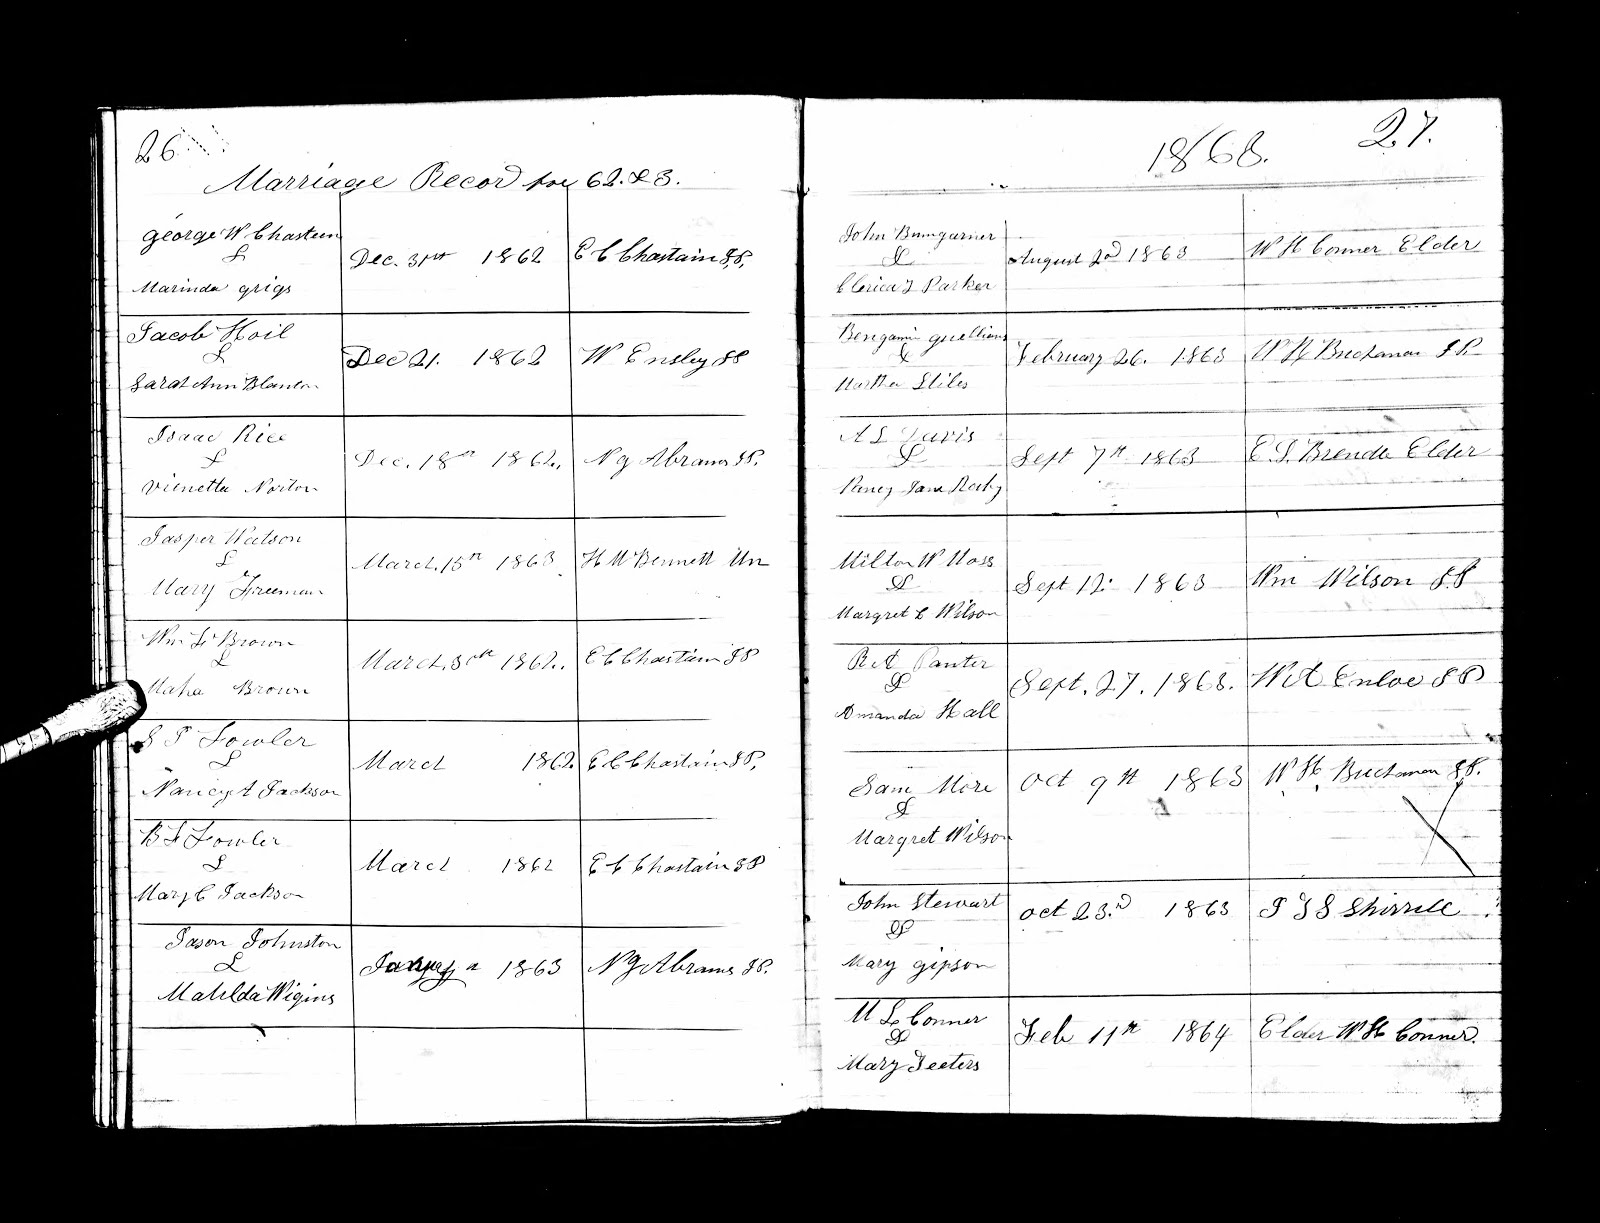 26
Marriage Record for 62. & 3.
George W Chasteen
&
Marinda grigs
Dec. 31st 1862
E C Chastain J.P.
Jacob Hoil
&
Sarah Ann Blanton
Dec 21. 1862
W Ensley JP
Isaac Rice
&
Vienetta Norton
Dec. 18th 1862.
N G Abrams J.P.
Jasper Watson
&
Mary Freeman
March. 15th 1863
H M Bennett Mn
Wm L Brown
&
Maha Brown
March. 30th 1862.
E C Chastain JP
S P Fowler
&
Nancy A Jackson
March 1862.
E C Chastain J.P.
B F Fowler
&
Mary C Jackson
March 1862
E C Chastain JP
Jason Johnston
&
Matilda Wigins
1863
N G Abrams J.P.
27.
1863.
John Bumgarner
&
Parker
August 2nd 1863
W H Conner Elder
&
Martha Stiles
February 26. 1863
W H Buchanan J.P.
A L Davis
&
Jane
Sept 7th 1863
Elder
Milton W Moss
&
Margret C Wilson
Sept 12. 1863
Wm Wilson JP
R A Panter
&
Amanda Hall
Sept. 27. 1863.
W A Enloe JP
Sam More
&
Margret Wilson
Oct 9th 1863
W H Buchanan J.P.
John Stewart
&
Mary gipson
Oct 23.rd 1863
Shirrill
M L Conner
&
Mary Teeters
Feb 11th 1864
Elder W H Conner.